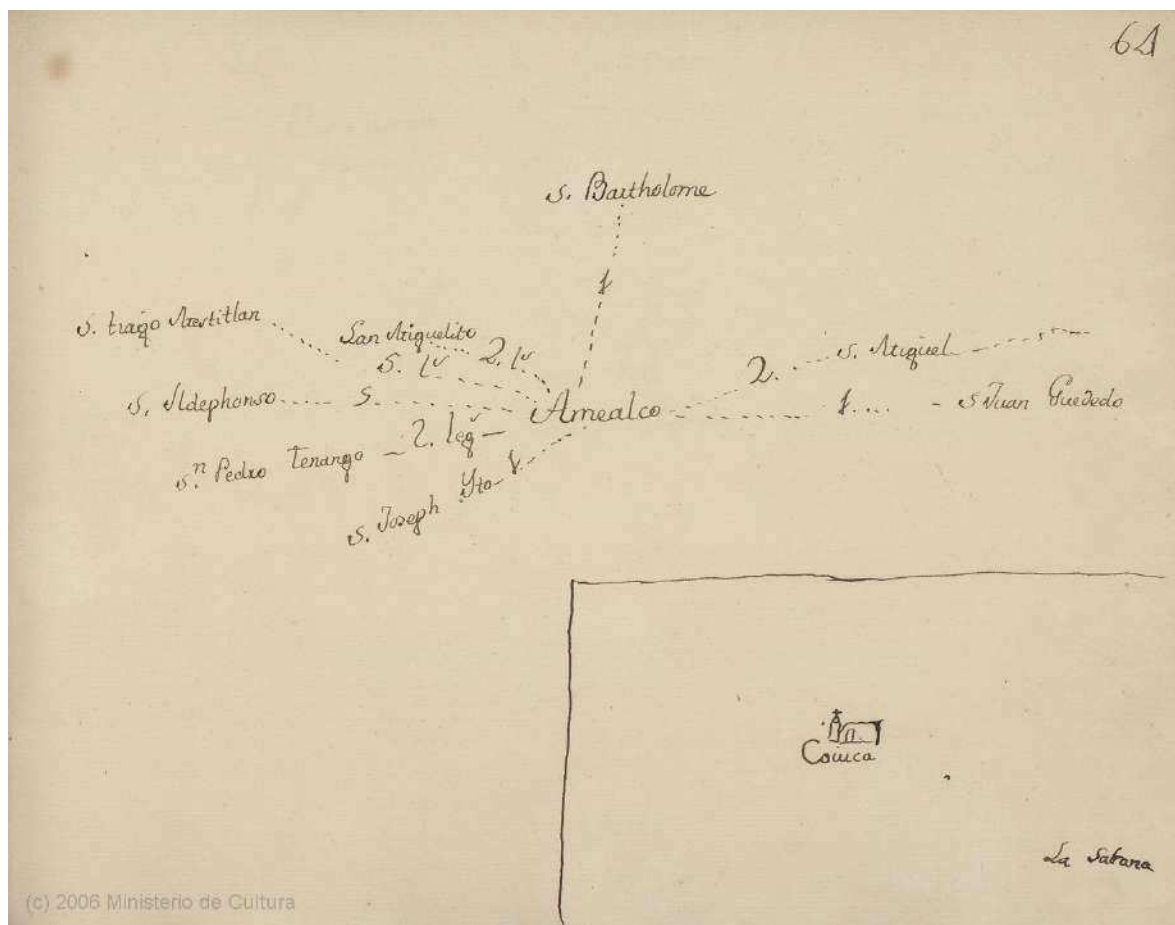 64
S. Bartholome
1
S. tiago Mestitlan
San Miguelito
5. l.s
2. l.s
2.
S. Miguel
S. Ildephonso
5
Amealco
1
S Juan Guedeo
S.n Pedro Tenango
2. leg.s
S. Joseph Yto
1
Coiuca
La Sabana
(c) 2006 Ministerio de Cultura